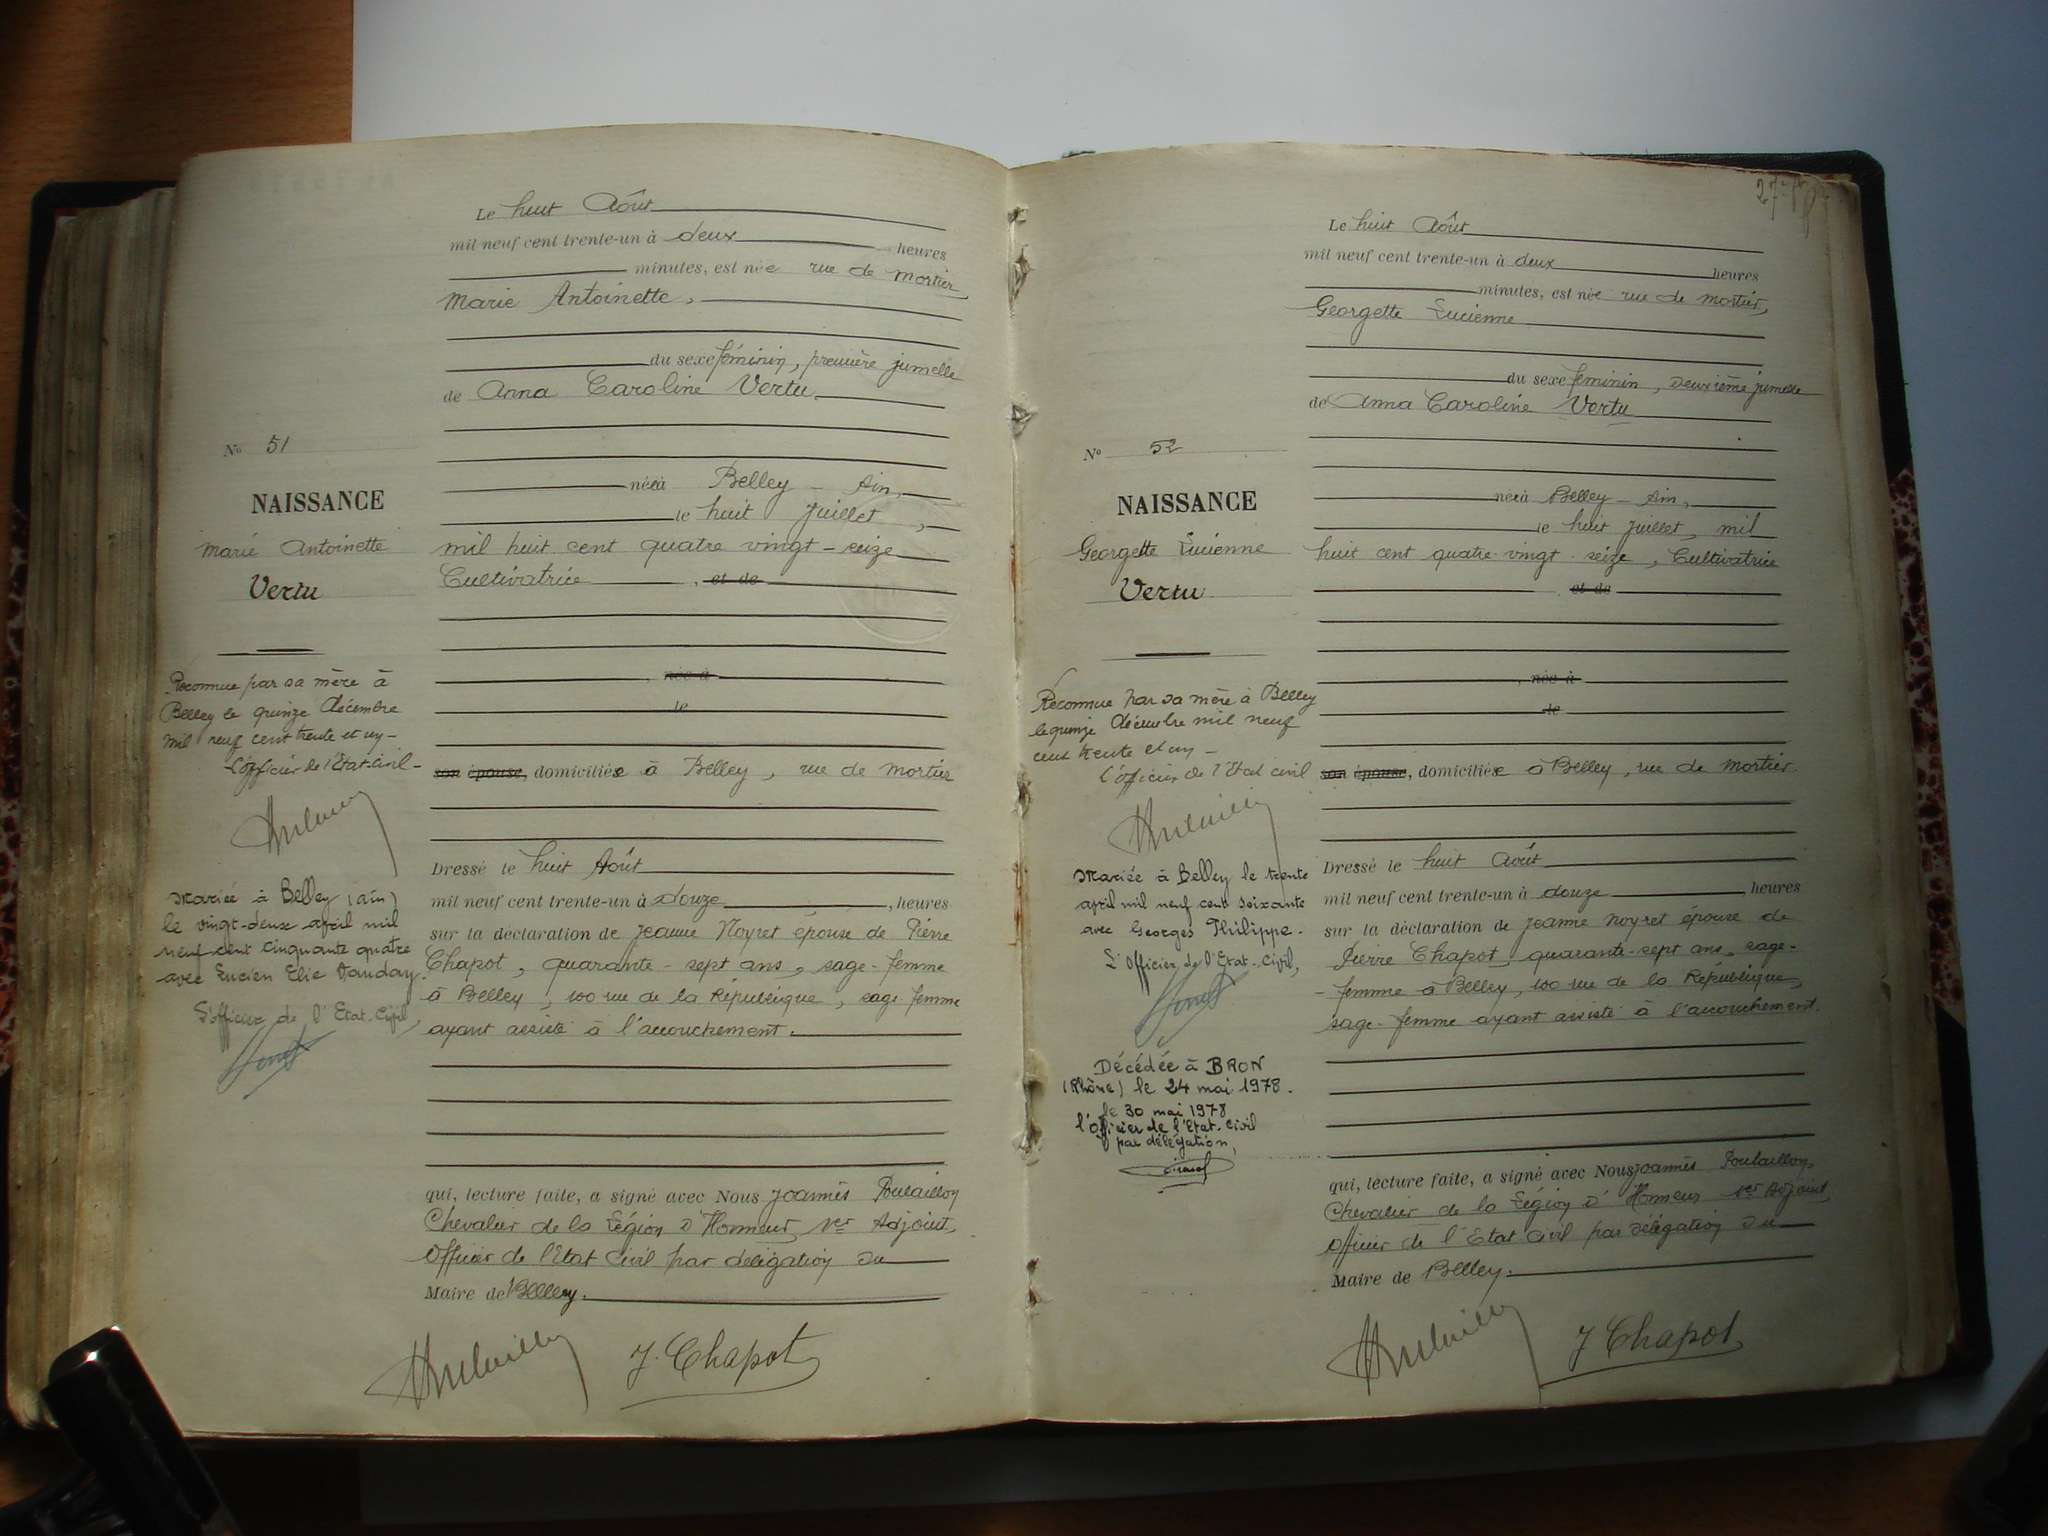 Le huit Août
mil neuf cent trente-un à deux heures
minutes, est née rue de Mortier,
Marie Antoinette,
du sexe féminin, première jumelle
de Anna Caroline Vertu
No 51
née à Belley - Ain,
NAISSANCE
le huit Juillet,
Marie Antoinette
mil huit cent quatre vingt-seize
Vertu
Cultivatrice, et de
Reconnue par sa mère à
Belley le quinze Décembre
mil neuf cent trente et un -
L'Officier de l'Etat-Civil -
, née à
le
son épouse, domiciliée à Belley, rue de Mortier
Dressé le huit Août
mil neuf cent trente-un à douze, heures
sur la déclaration de Jeanne Noyret épouse de Pierre
Chapot, quarante-sept ans, sage-femme
à Belley, 100 rue de la République, sage femme
ayant assisté à l'accouchement.
Mariée à Belley (Ain)
le vingt-deux avril mil
neuf cent cinquante quatre
avec Lucien Elie
L'Officier de l'Etat-Civil,
qui, lecture faite, a signé avec Nous Joannès Poulaillon
Chevalier de la Légion d'Honneur, 1er Adjoint,
Officier de l'Etat Civil par délégation du
Maire de Belley.
J. Chapot
27-
Le huit Août
mil neuf cent trente-un à deux heures
minutes, est née rue de Mortier,
Georgette Lucienne
du sexe féminin, deuxième jumelle
de Anna Caroline Vertu
No 52
née à Belley - Ain,
NAISSANCE
le huit Juillet, mil
Georgette Lucienne
huit cent quatre-vingt-seize, Cultivatrice
Vertu
et de
Reconnue par sa mère à Belley
le quinze Décembre mil neuf
cent trente et un -
L'Officier de l'Etat civil
, née à
le
son épouse, domiciliée à Belley, rue de Mortier
Dressé le huit Août
mil neuf cent trente-un à douze, heures
sur la déclaration de Jeanne Noyret épouse de
Pierre Chapot, quarante-sept ans, sage-
-femme à Belley, 100 rue de la République,
sage-femme ayant assisté à l'accouchement.
Mariée à Belley le trente
avril mil neuf cent soixante
avec Georges Philippe.
L'Officier de l'Etat-Civil,
Décédée à BRON
(Rhône) le 24 mai 1978.
le 30 mai 1978
l'Officier de l'Etat-Civil
par délégation,
qui, lecture faite, a signé avec Nous Joannès Poulaillon
Chevalier de la Légion d'Honneur 1er Adjoint,
Officier de l'Etat Civil par délégation du
Maire de Belley.
J Chapot